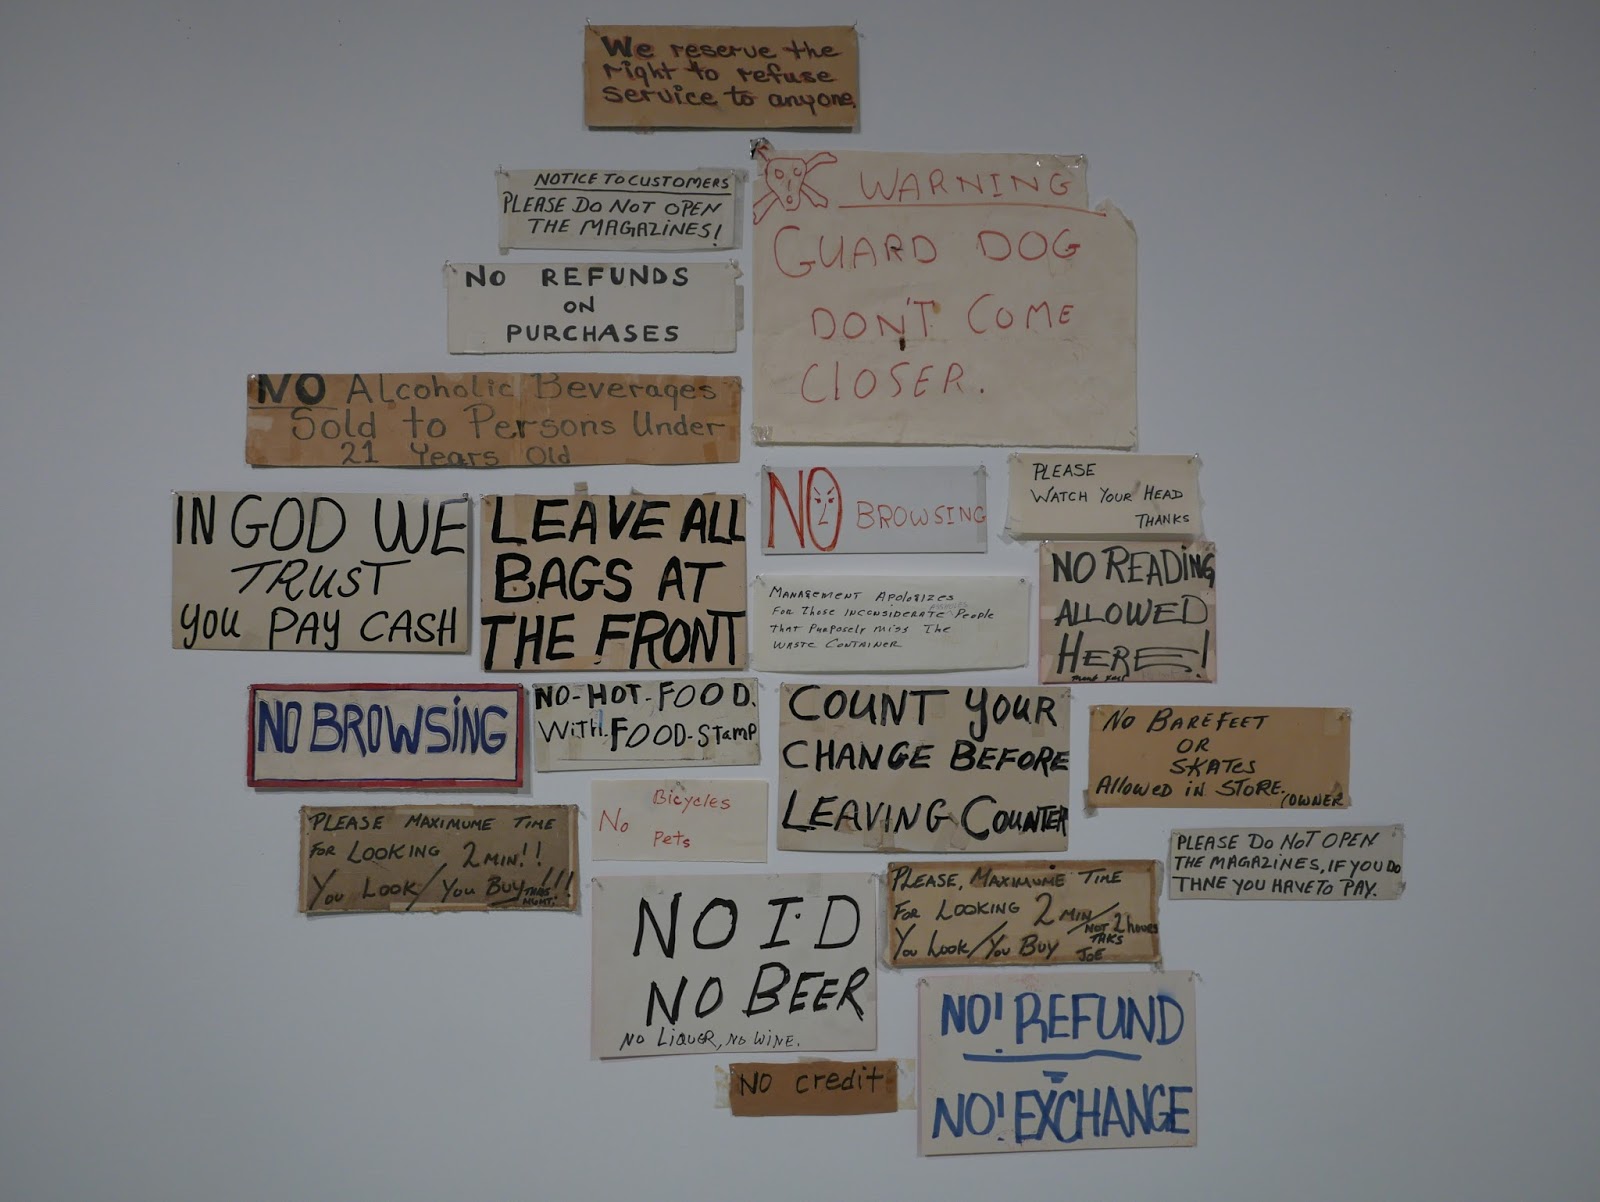 We reserve the
right to refuse
service to anyone.
NOTICE TO CUSTOMERS
PLEASE DO NOT OPEN
THE MAGAZINES!
WARNING
GUARD DOG
DON'T COME
CLOSER.
NO REFUNDS
ON
PURCHASES
NO Alcoholic Beverages
Sold to Persons Under
21 Years Old
IN GOD WE
TRUST
YOU PAY CASH
LEAVE ALL
BAGS AT
THE FRONT
NO BROWSING
PLEASE
WATCH YOUR HEAD
THANKS
MANAGEMENT APOLOGIZES
FOR THOSE INCONSIDERATE PEOPLE
THAT PURPOSELY MISS THE
WASTE CONTAINER
NO READING
ALLOWED
HERE!
NO BROWSING
NO-HOT-FOOD.
WITH-FOOD-STAMP
COUNT YOUR
CHANGE BEFORE
LEAVING COUNTER
NO BAREFEET
OR
SKATES
ALLOWED IN STORE.
(OWNER
PLEASE MAXIMUME TIME
FOR LOOKING 2 MIN!!
YOU LOOK/YOU BUY !!!
No Bicycles
Pets
PLEASE DO NOT OPEN
THE MAGAZINES, IF YOU DO
THNE YOU HAVE TO PAY.
NO I.D
NO BEER
NO LIQUER, NO WINE.
PLEASE, MAXIMUME TIME
FOR LOOKING 2 MIN/NOT 2 hours
YOU LOOK/YOU BUY
JOE
NO! REFUND
NO! EXCHANGE
NO credit